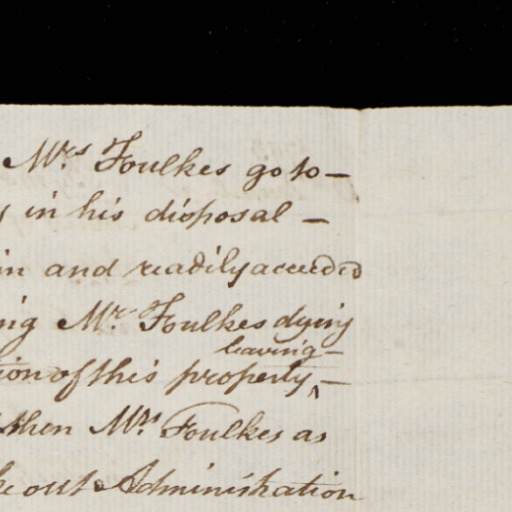 Mrs Foulkes go to —
y in his disposal —
in and readily acceeded
ng Mr Foulkes dying
leaving —
tion of this property, ^ —
then Mrs Foulkes as
ke out Administration